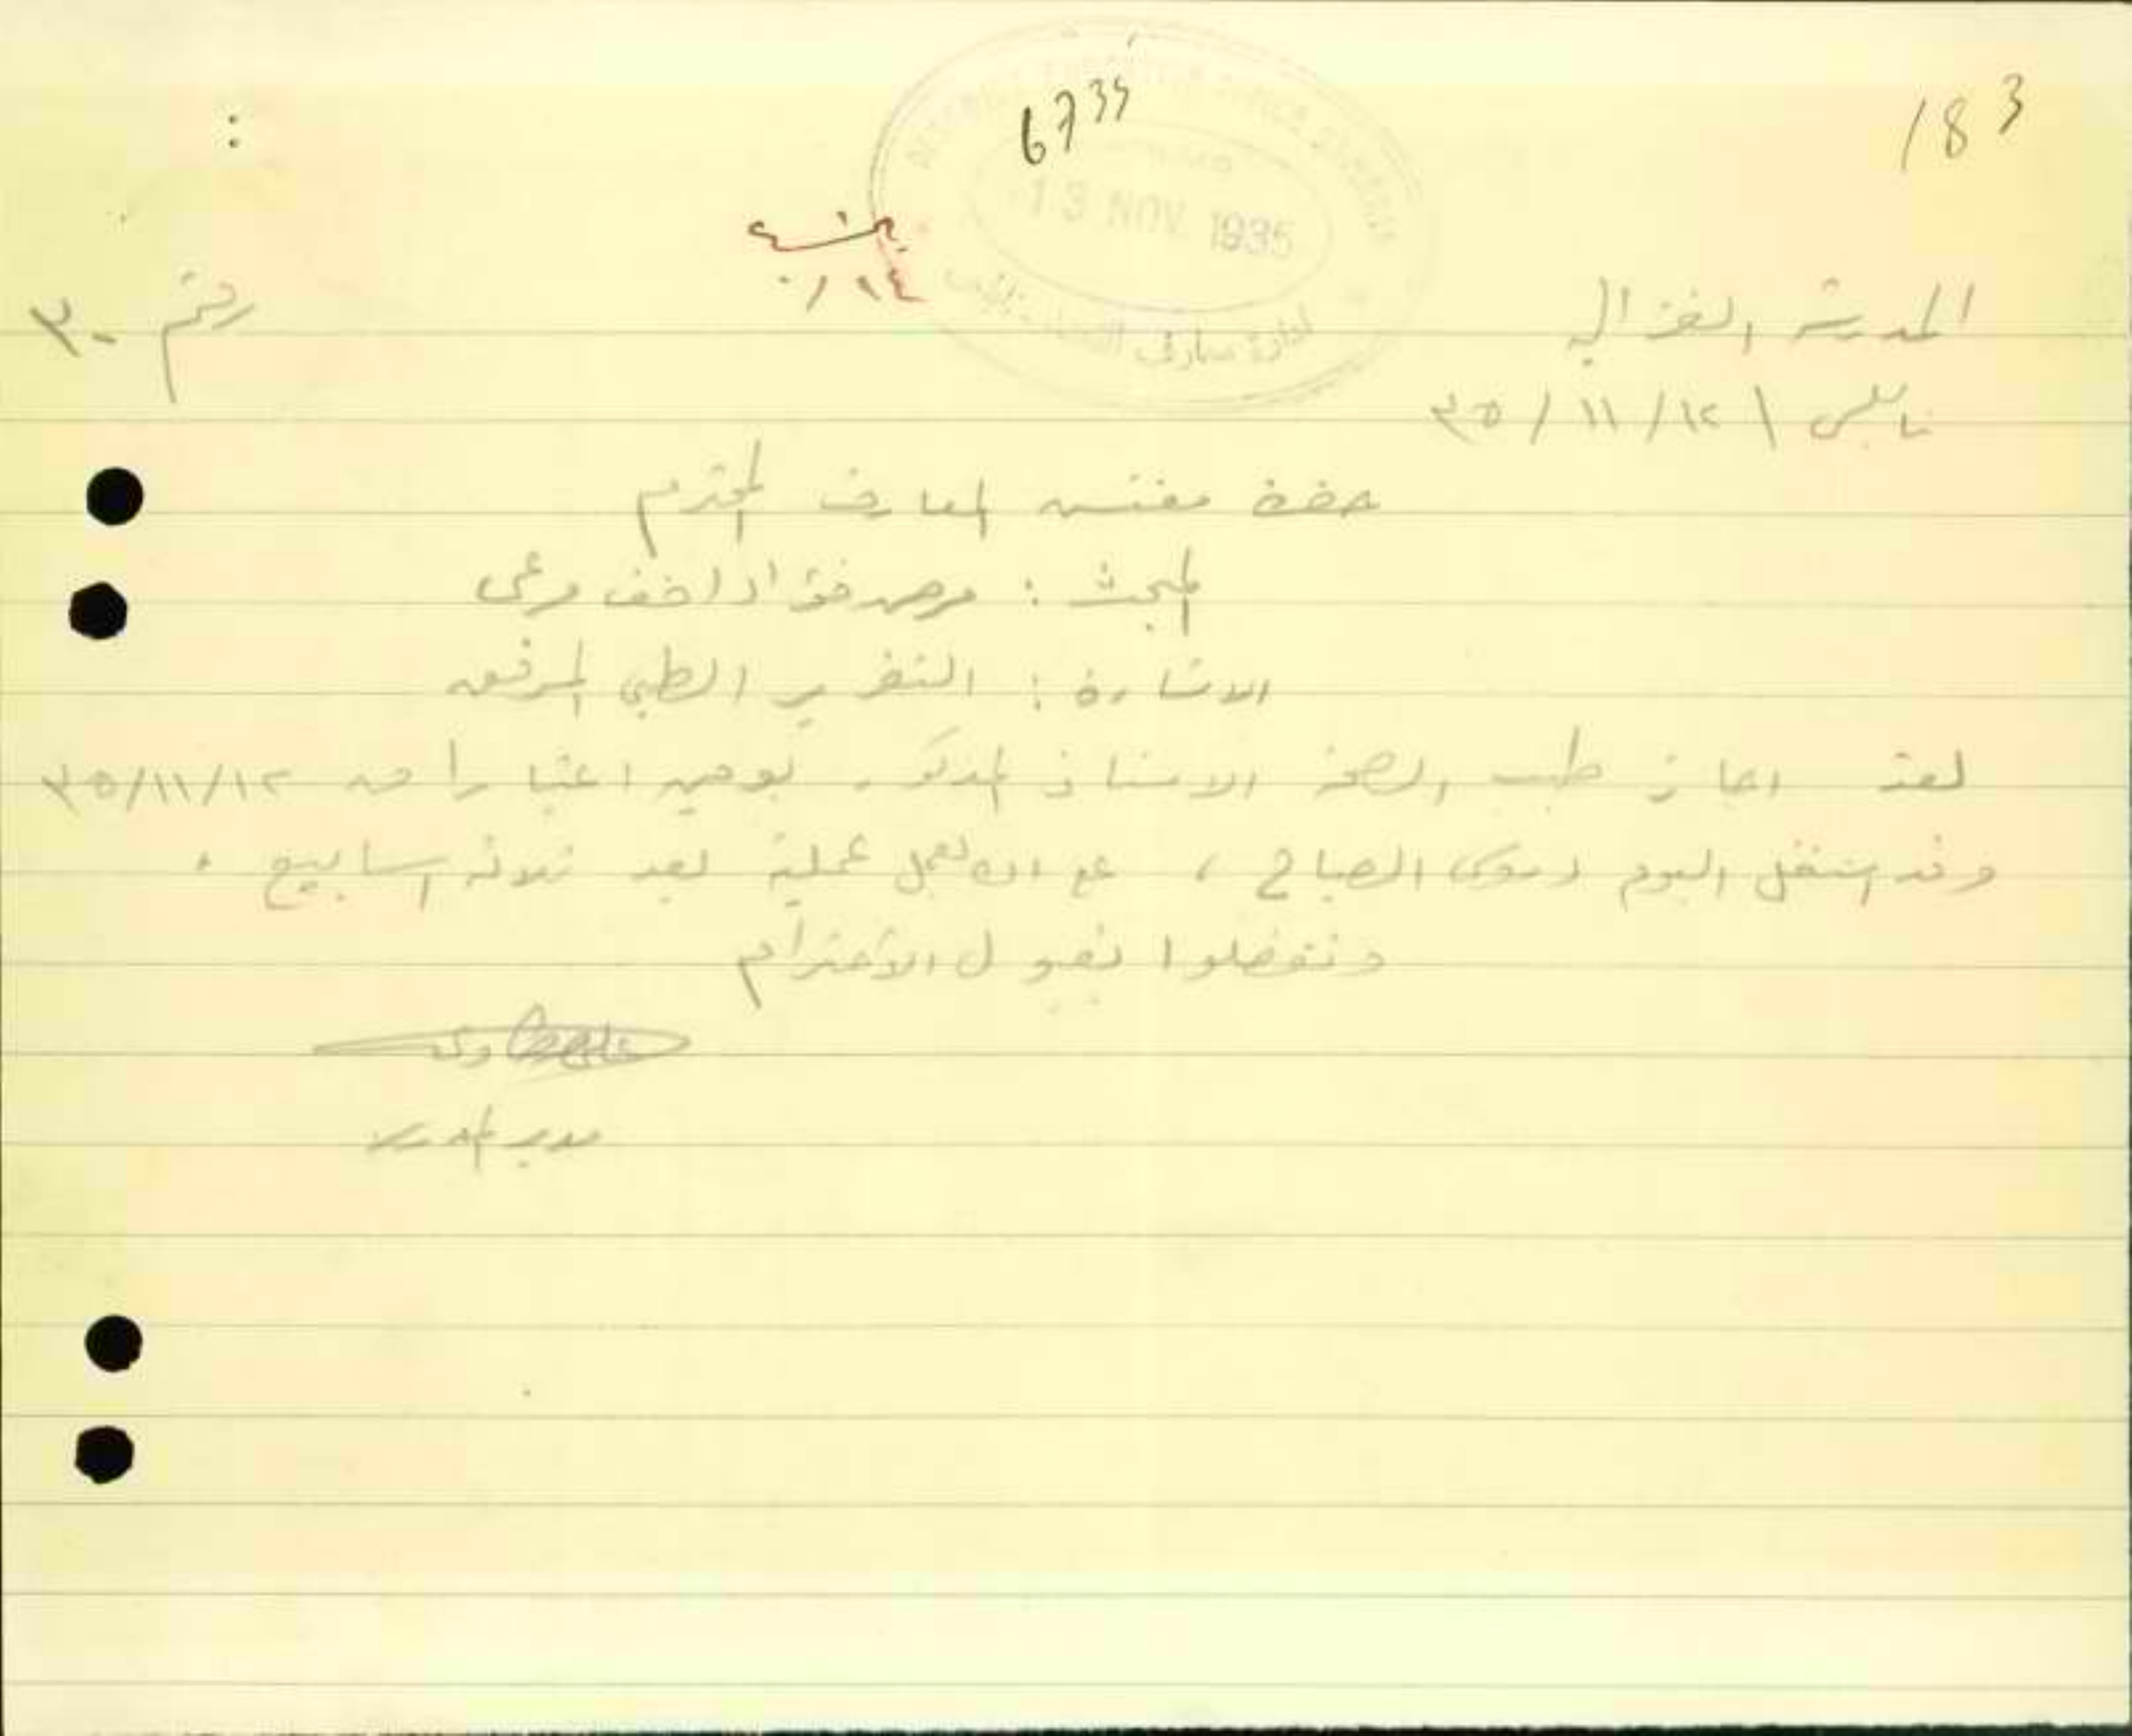 183
6735
13 NOV. 1935
ادارة معارف
١٤/
المدرسة الغزالية
رقم ٣٠
نابلس ١٢ / ١١ / ٣٥
حضرة مفتش المعارف المحترم
المبحث : مرض فؤاد افندي مرعي
الاشارة : التقرير الطبي المرفق
لقد اجاز طبيب الصحة الاستاذ المذكور يومين اعتباراً من ١٢/١١/٣٥
وقد اشتغل اليوم دروس الصباح ، على ان تعمل عملية بعد ثلاثة اسابيع .
وتفضلوا بقبول الاحترام
مدير المدرسة